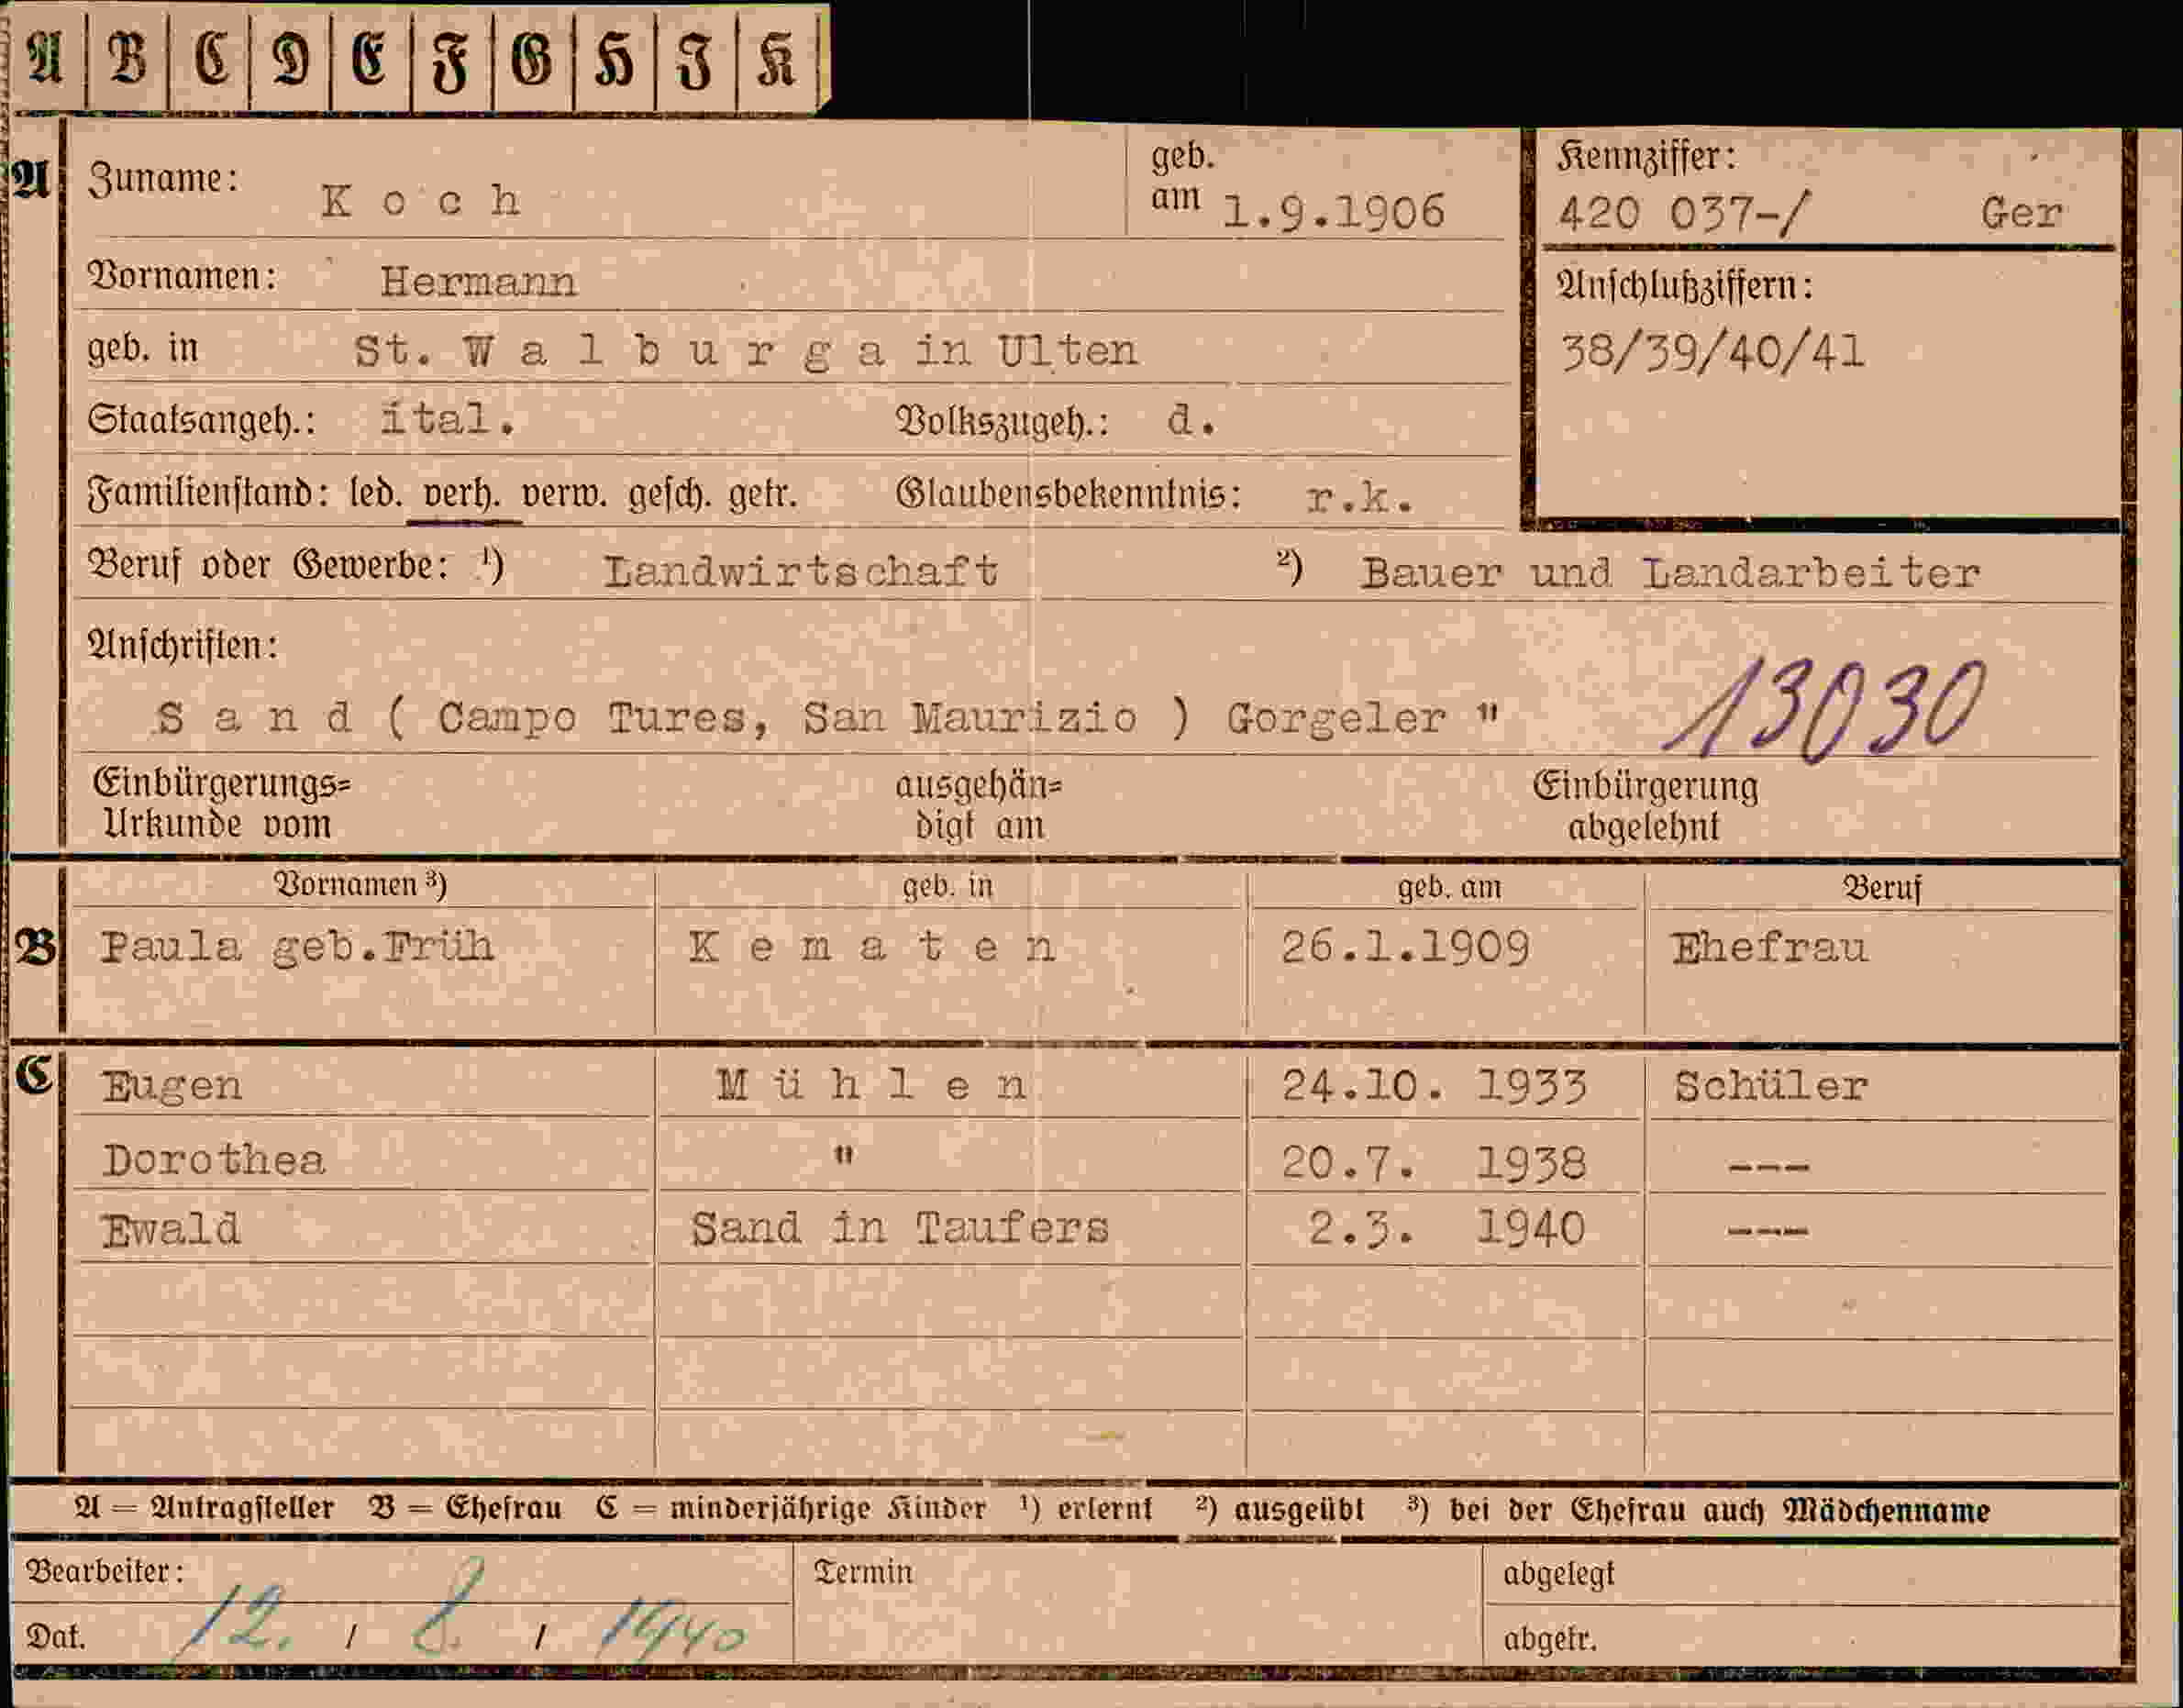 A B C D E F G H I K
A Zuname: Koch geb. am 1.9.1906 Kennziffer: 420 037-/ Ger
Vornamen: Hermann Anschlußziffern:
geb. in St. Walburga in Ulten 38/39/40/41
Staatsangeh.: ital. Volkszugeh.: d.
Familienstand: led. verh. verw. gesch. getr. Glaubensbekenntnis: r.k.
Beruf oder Gewerbe: ¹) Landwirtschaft ²) Bauer und Landarbeiter
Anschriften:
Sand ( Campo Tures, San Maurizio ) Gorgeler " 13030
Einbürgerungs= ausgehän= Einbürgerung
Urkunde vom digt am abgelehnt
Vornamen ³) geb. in geb. am Beruf
B Paula geb.Früh Kematen 26.1.1909 Ehefrau
C Eugen Mühlen 24.10. 1933 Schüler
Dorothea " 20.7. 1938 ---
Ewald Sand in Taufers 2.3. 1940 ---
A = Antragsteller B = Ehefrau C = minderjährige Kinder ¹) erlernt ²) ausgeübt ³) bei der Ehefrau auch Mädchenname
Bearbeiter: Termin abgelegt
Dat. 12. / 8. / 1940 abgetr.